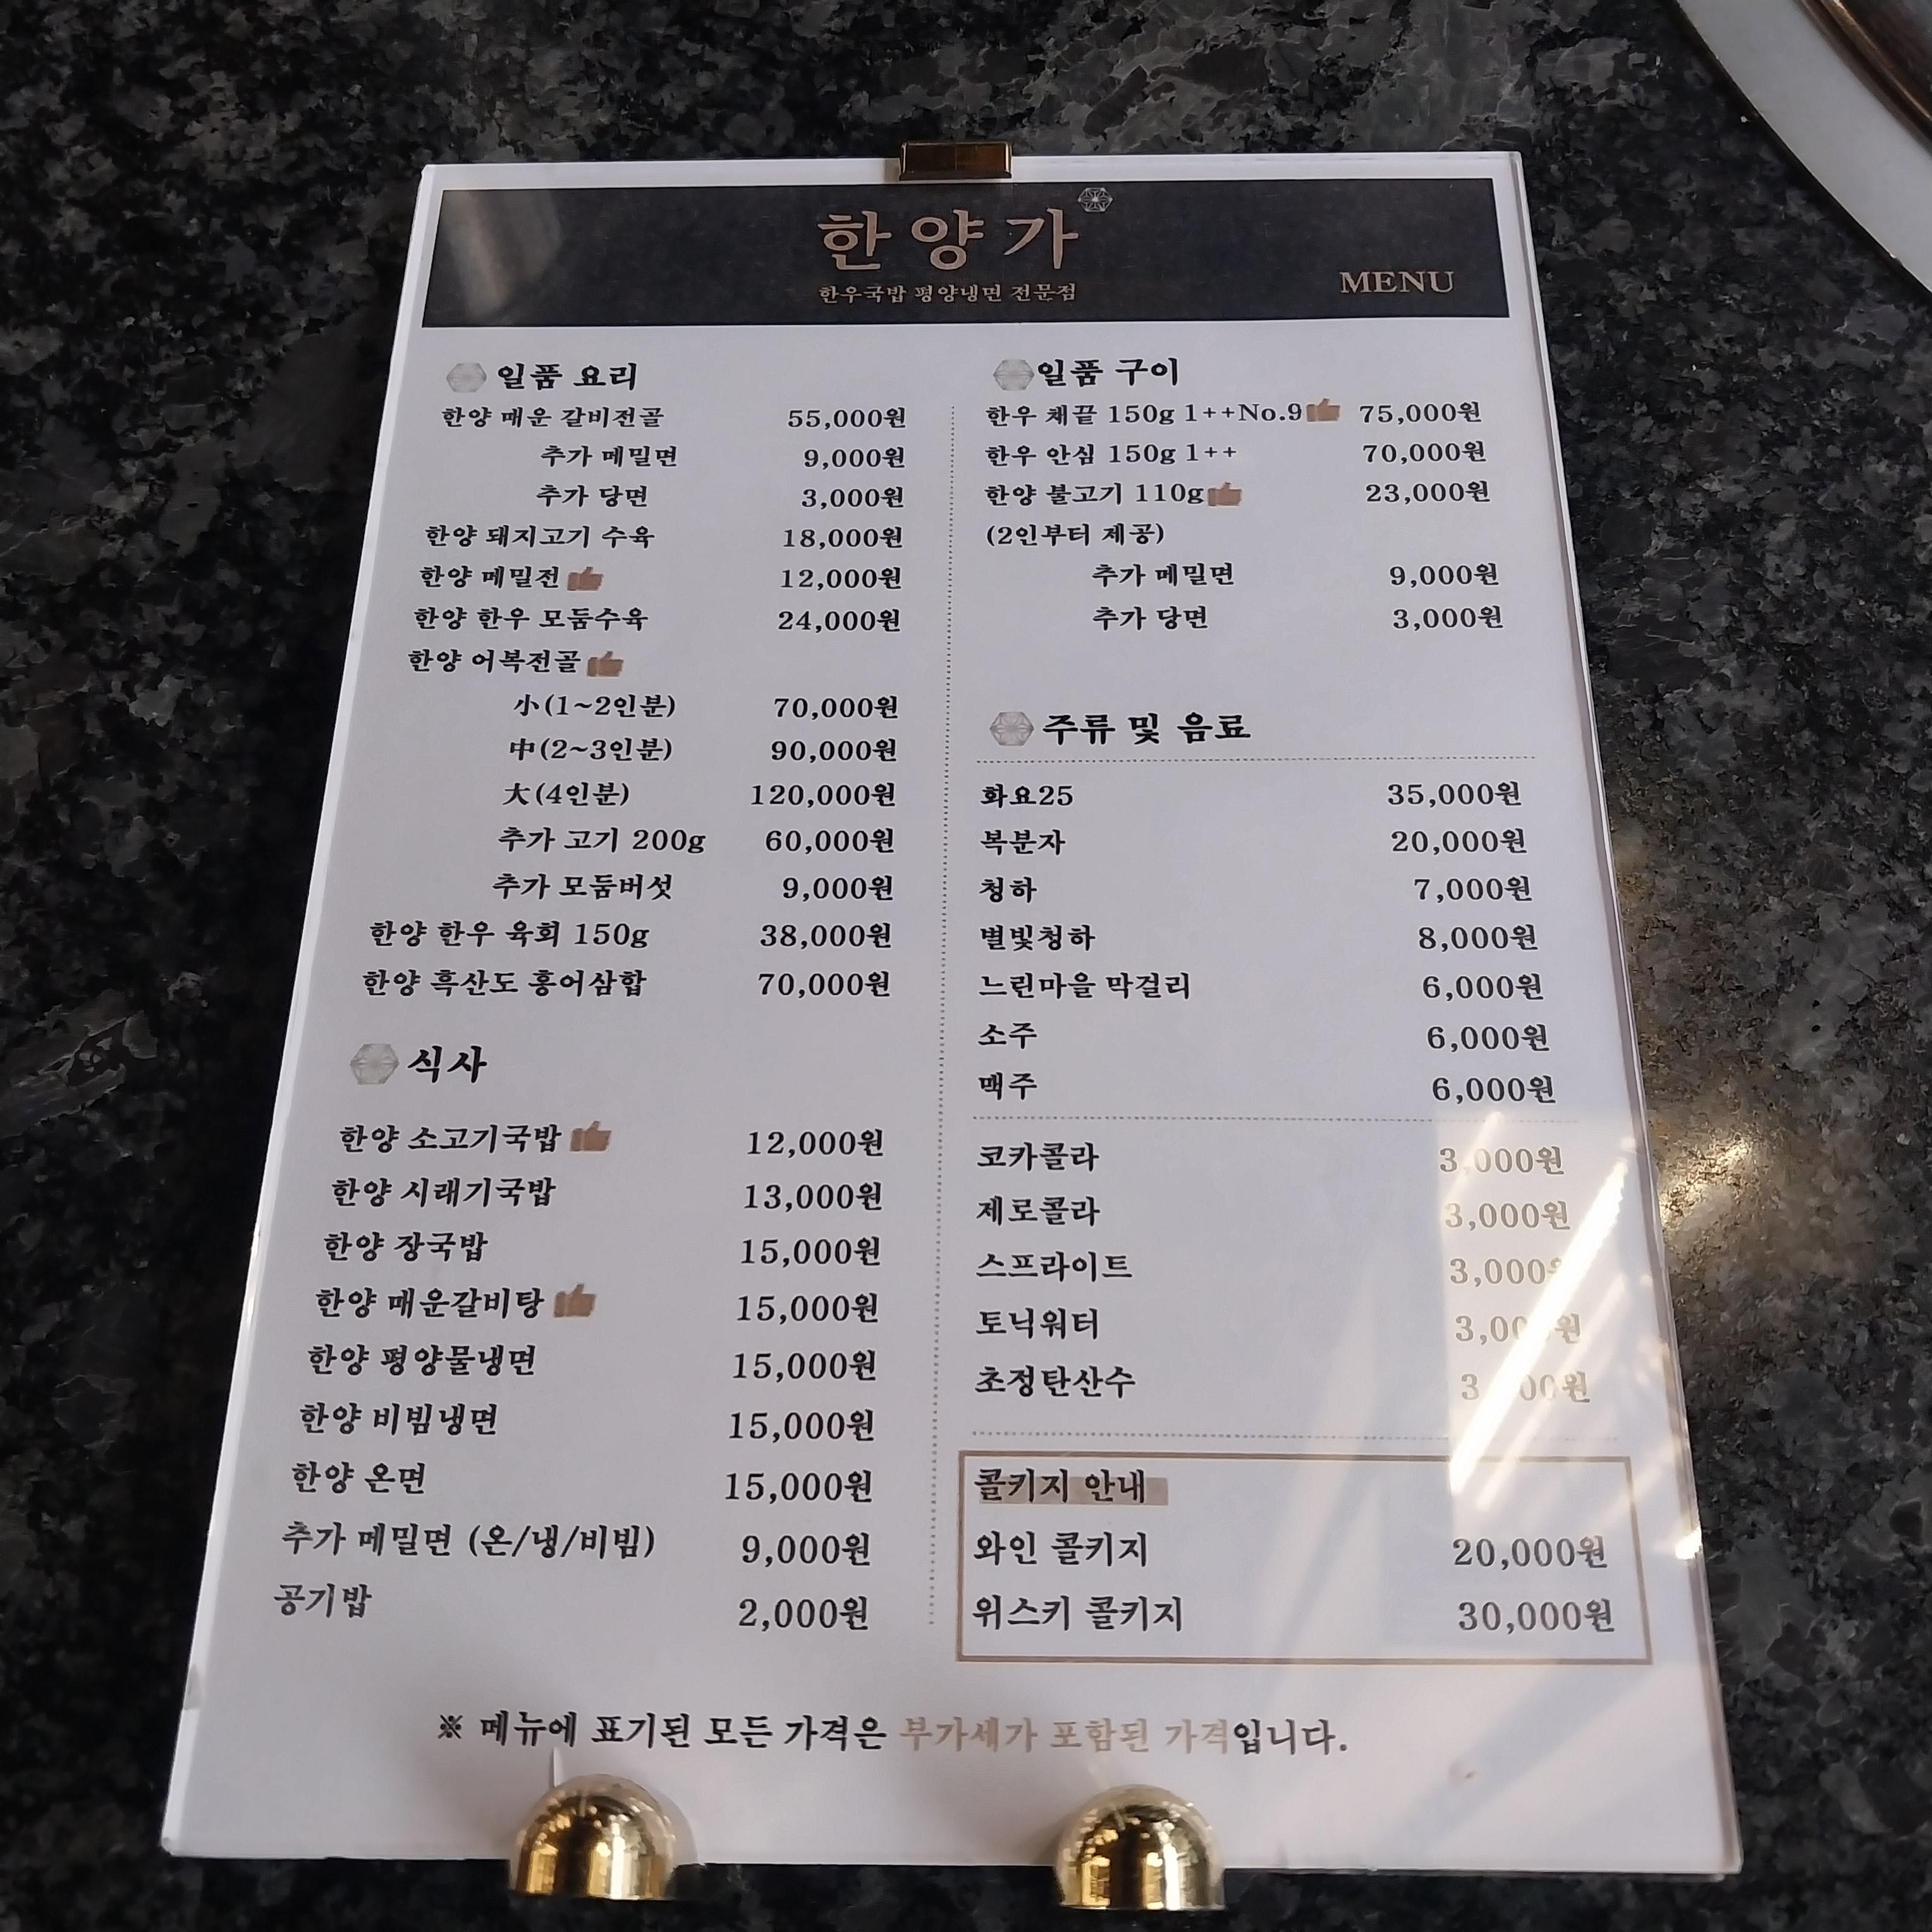 한양가
한우국밥 평양냉면 전문점
MENU
일품 요리
한양 매운 갈비전골 55,000원
추가 메밀면 9,000원
추가 당면 3,000원
한양 돼지고기 수육 18,000원
한양 메밀전 12,000원
한양 한우 모둠수육 24,000원
한양 어복전골
小(1~2인분) 70,000원
中(2~3인분) 90,000원
大(4인분) 120,000원
추가 고기 200g 60,000원
추가 모둠버섯 9,000원
한양 한우 육회 150g 38,000원
한양 흑산도 홍어삼합 70,000원
식사
한양 소고기국밥 12,000원
한양 시래기국밥 13,000원
한양 장국밥 15,000원
한양 매운갈비탕 15,000원
한양 평양물냉면 15,000원
한양 비빔냉면 15,000원
한양 온면 15,000원
추가 메밀면 (온/냉/비빔) 9,000원
공기밥 2,000원
일품 구이
한우 채끝 150g 1++No.9 75,000원
한우 안심 150g 1++ 70,000원
한양 불고기 110g 23,000원
(2인부터 제공)
추가 메밀면 9,000원
추가 당면 3,000원
주류 및 음료
화요25 35,000원
복분자 20,000원
청하 7,000원
별빛청하 8,000원
느린마을 막걸리 6,000원
소주 6,000원
맥주 6,000원
코카콜라 3,000원
제로콜라 3,000원
스프라이트 3,000원
토닉워터
초정탄산수
콜키지 안내
와인 콜키지 20,000원
위스키 콜키지 30,000원
※ 메뉴에 표기된 모든 가격은 부가세가 포함된 가격입니다.